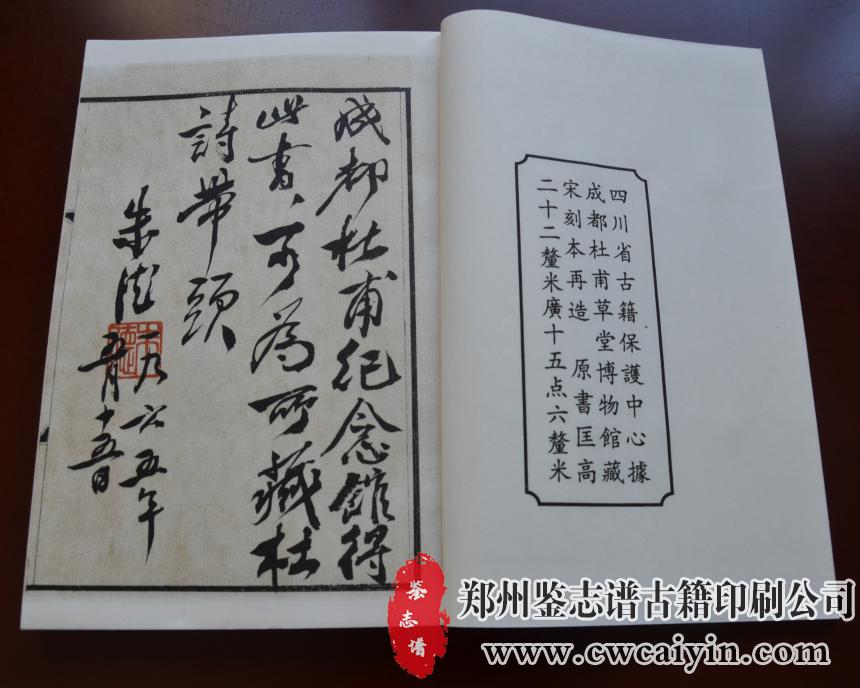 四川省古籍保護中心據
成都杜甫草堂博物館藏
宋刻本再造 原書匡高
二十二釐米廣十五点六釐米
成都杜甫纪念館得
此書、可為所藏杜
詩帶頭
朱德
一九六五年
五月十五日
鉴志谱
郑州鉴志谱古籍印刷公司
www.cwcaiyin.com